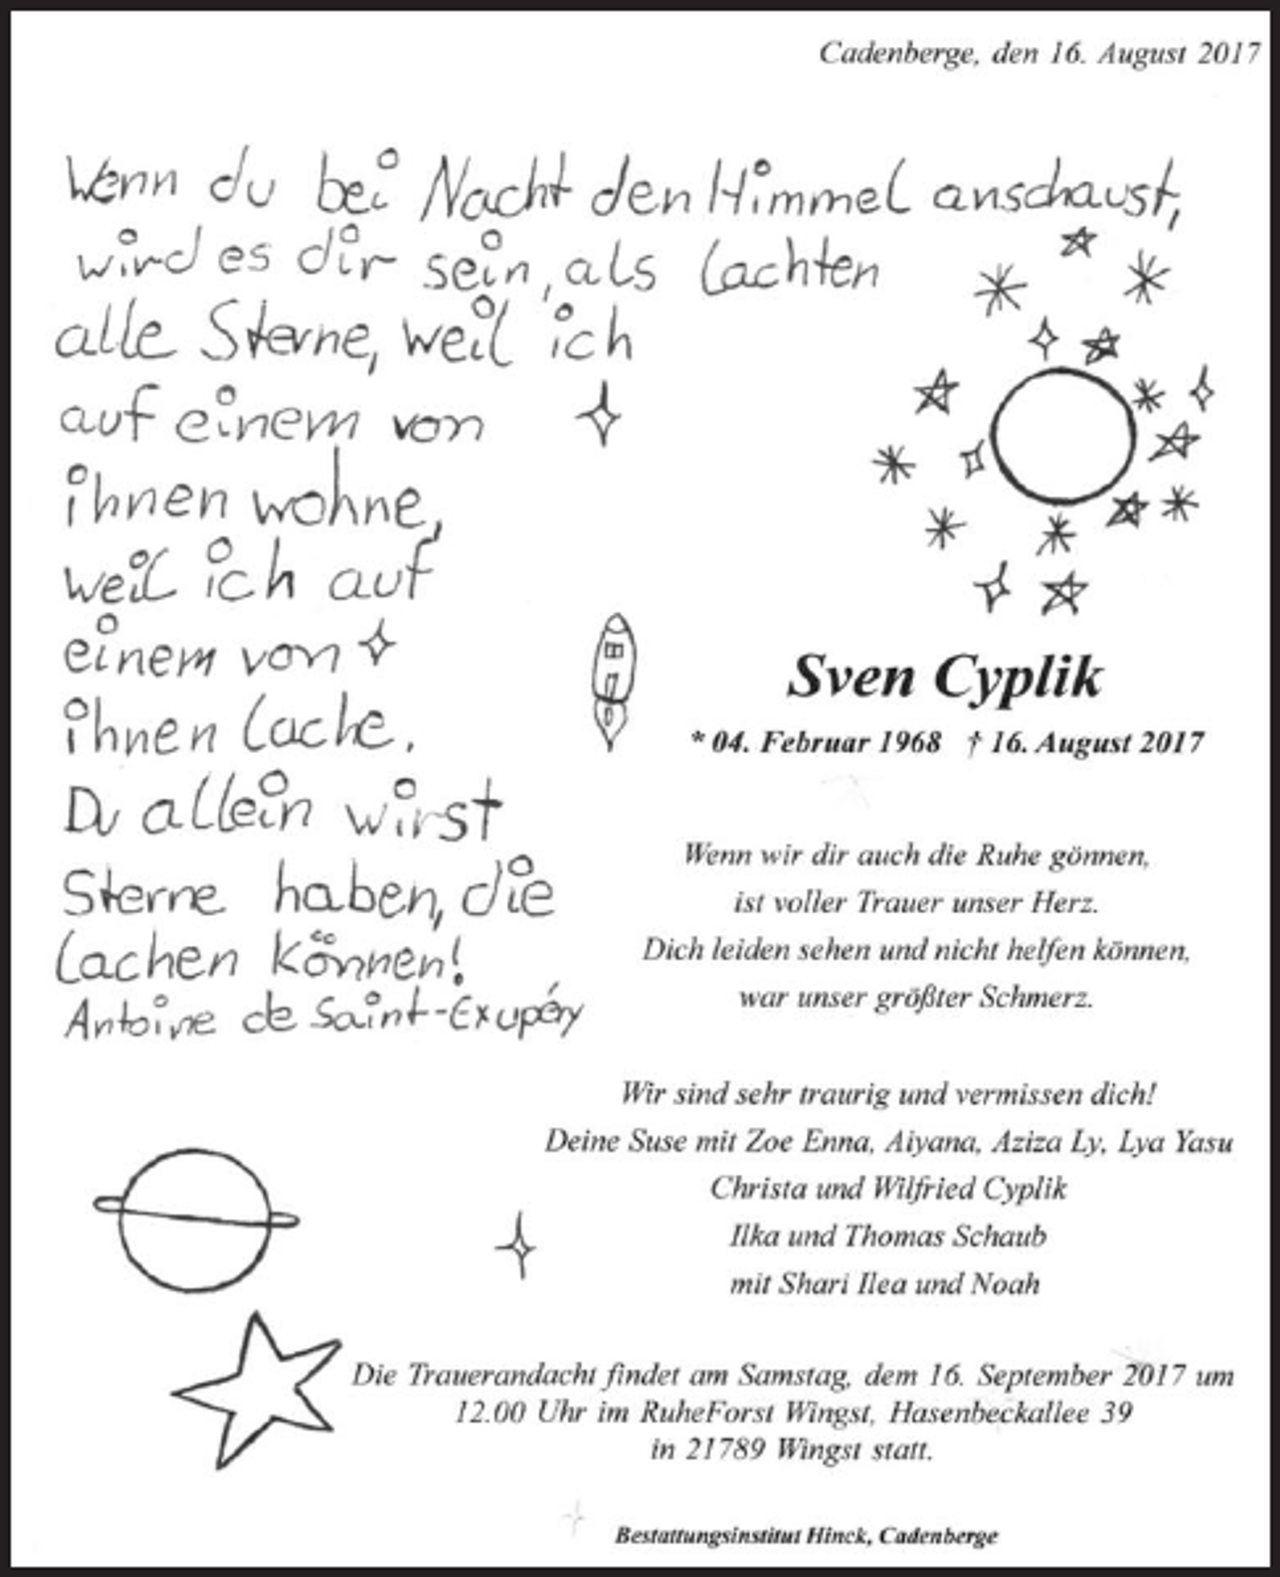 Cadenberge, den 16. August 2017
Wenn du bei Nacht den Himmel anschaust,
wird es dir sein, als lachten
alle Sterne, weil ich
auf einem von
ihnen wohne,
weil ich auf
einem von
ihnen lache.
Du allein wirst
Sterne haben, die
lachen können!
Antoine de Saint-Exupéry
Sven Cyplik
* 04. Februar 1968 † 16. August 2017
Wenn wir dir auch die Ruhe gönnen,
ist voller Trauer unser Herz.
Dich leiden sehen und nicht helfen können,
war unser größter Schmerz.
Wir sind sehr traurig und vermissen dich!
Deine Suse mit Zoe Enna, Aiyana, Aziza Ly, Lya Yasu
Christa und Wilfried Cyplik
Ilka und Thomas Schaub
mit Shari Ilea und Noah
Die Trauerandacht findet am Samstag, dem 16. September 2017 um
12.00 Uhr im RuheForst Wingst, Hasenbeckallee 39
in 21789 Wingst statt.
Bestattungsinstitut Hinck, Cadenberge